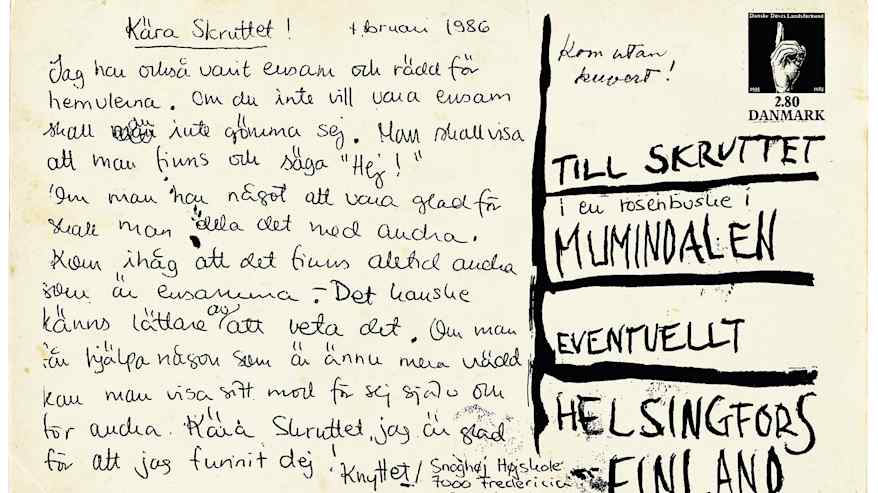 Kära Skruttet !
februari 1986
Jag har också varit ensam och rädd för
hemulerna. Om du inte vill vara ensam
skall du inte gömma sej. Man skall visa
att man finns och säga "Hej!"
Om man har något att vara glad för
skall man dela det med andra.
Kom ihåg att det finns alltid andra
som är ensamma – Det kanske
känns lättare av att veta det. Om man
får hjälpa någon som är ännu mera rädd
kan man visa sitt mod för sej själv och
för andra. Kära Skruttet, jag är glad
för att jag funnit dej !
Knyttet / Snoghøj Højskole
7000 Fredericia
Kom utan
kuvert !
Danske Døves Landsforbund
2.80
DANMARK
TILL SKRUTTET
i en rosenbuske i
MUMINDALEN
EVENTUELLT
HELSINGFORS
FINLAND